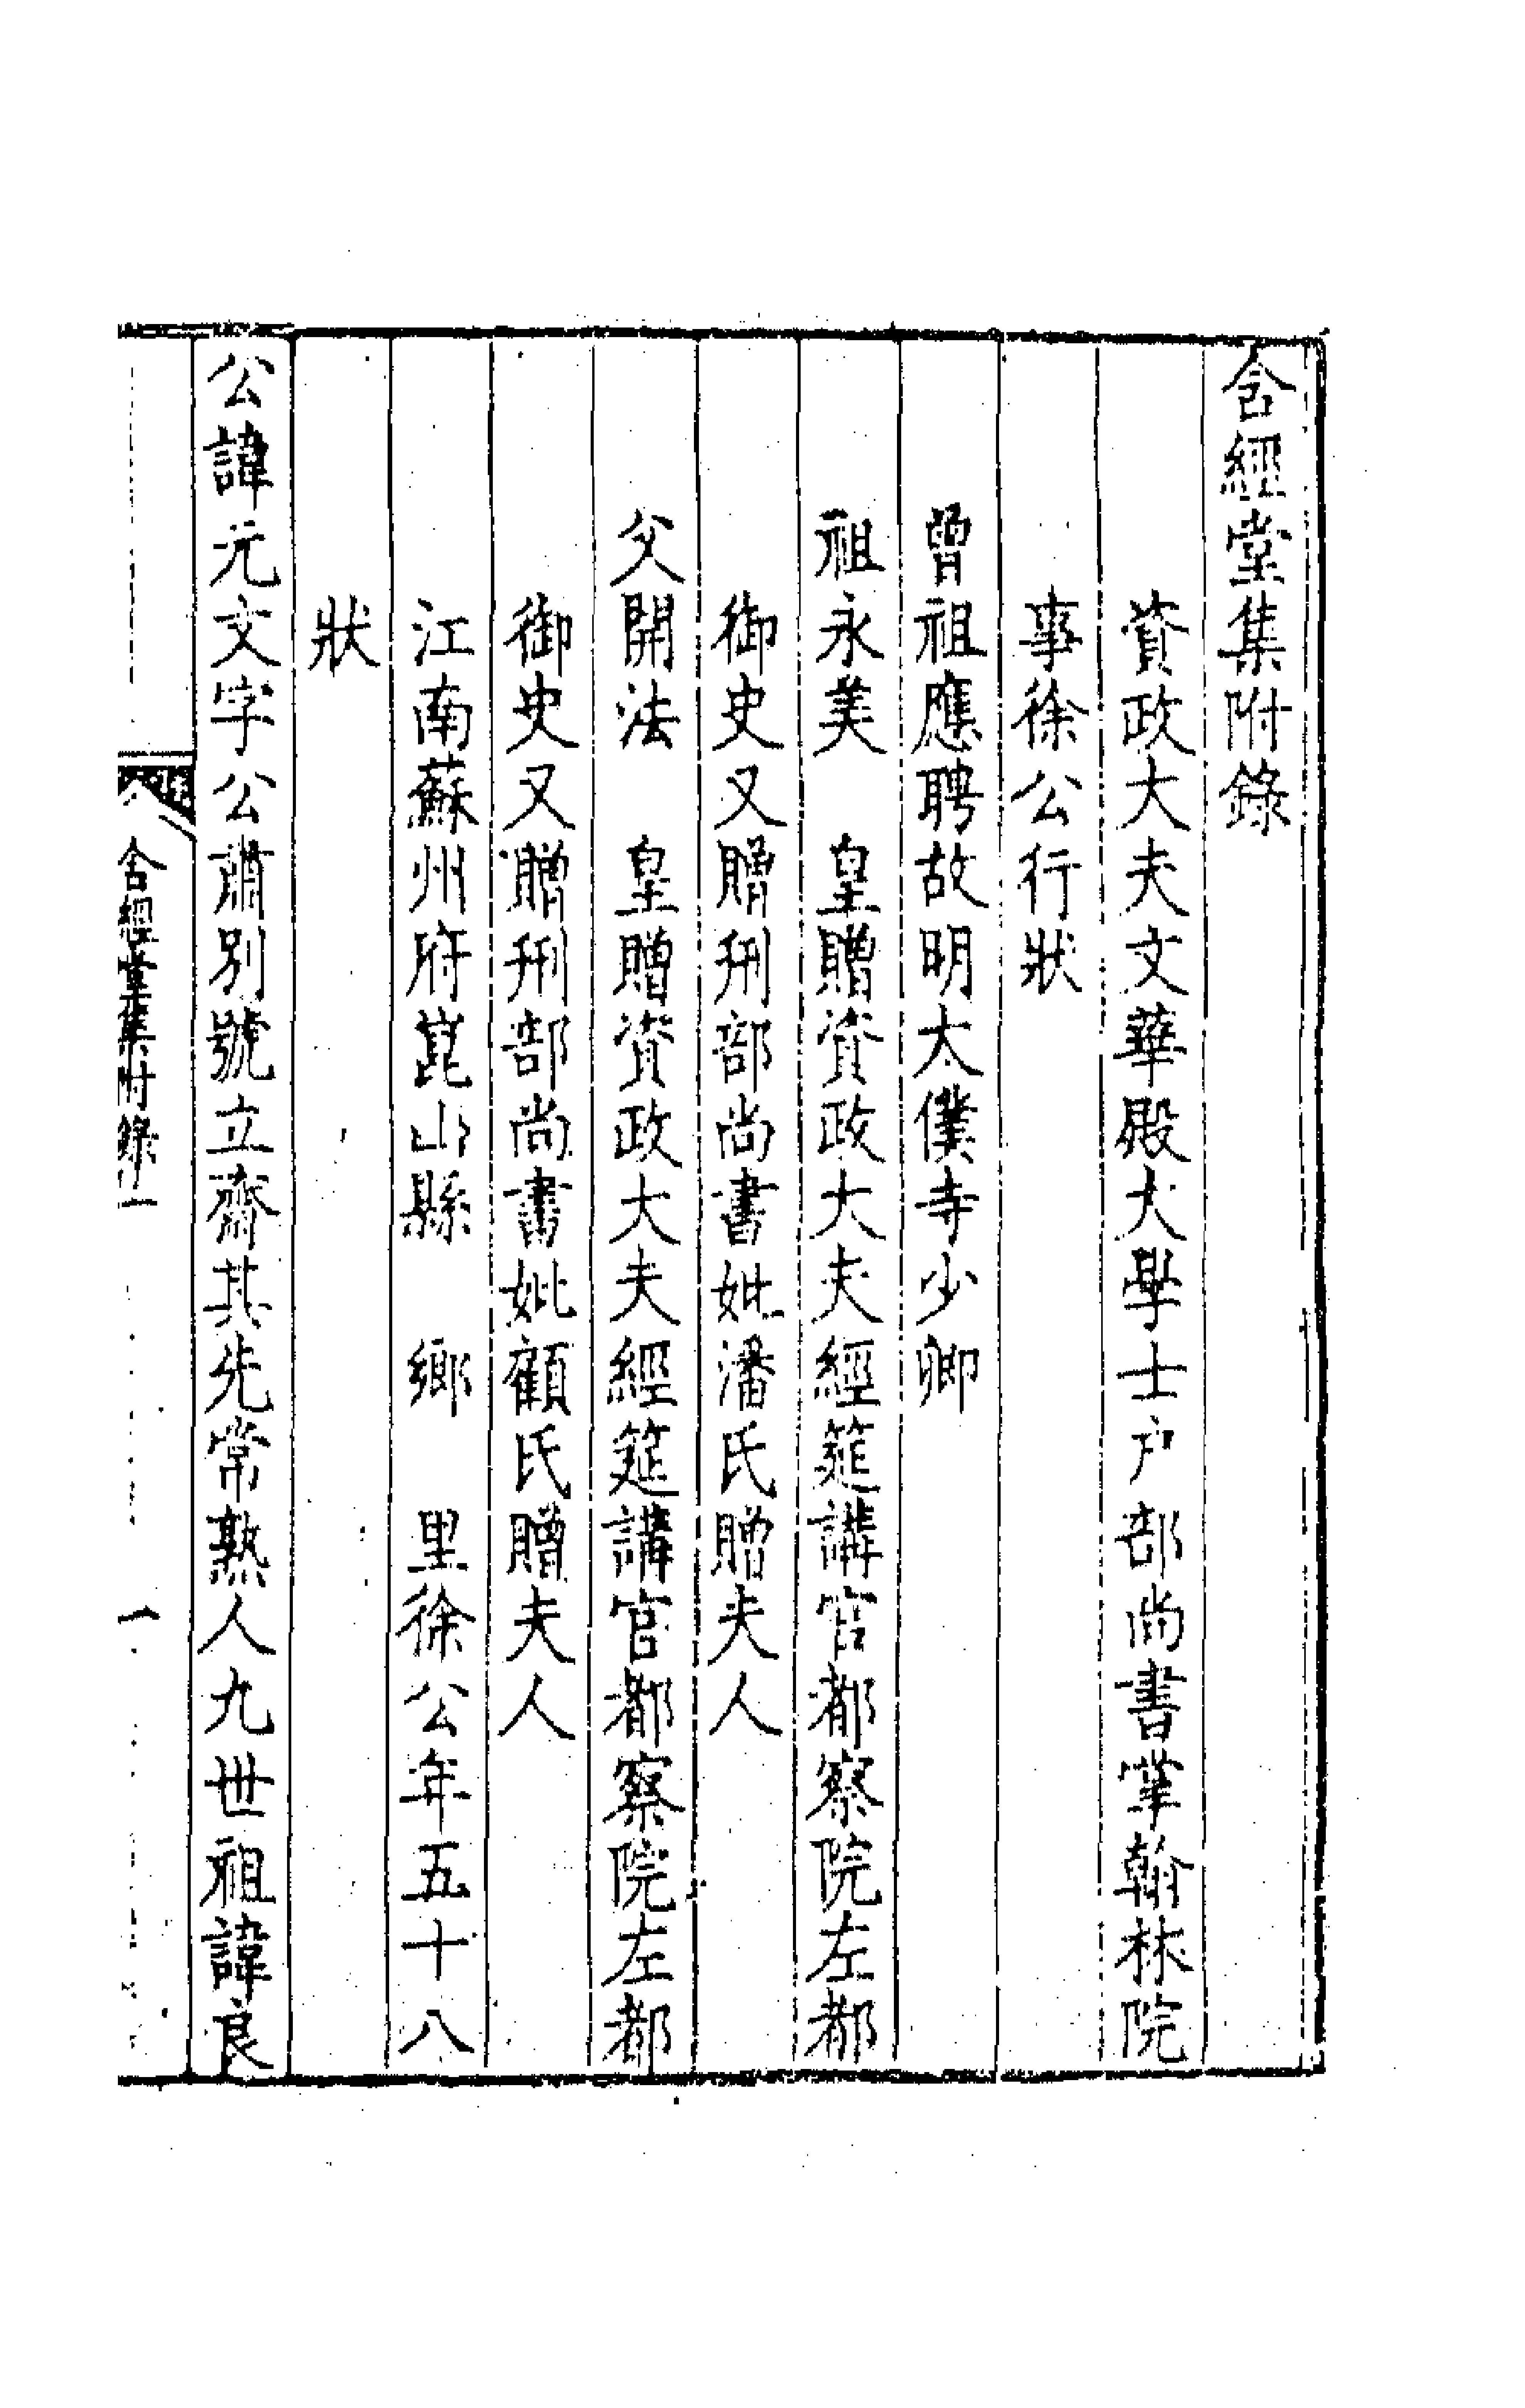 含經堂集附錄
資政大夫文華殿大學士戶部尚書掌翰林院
事徐公行狀
曾祖應聘故明太僕寺少卿
祖永美　皇贈資政大夫經筵講官都察院左都
御史又贈刑部尚書妣潘氏贈夫人
父開法　皇贈資政大夫經筵講官都察院左都
御史又贈刑部尚書妣顧氏贈夫人
江南蘇州府崑山縣　鄉　里徐公年五十八
狀
公諱元文字公肅別號立齋其先常熟人九世祖諱良
含經堂集附錄一
一